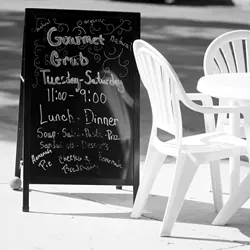 organic
Gourmet
Grub
Tuesday-Saturday
11:00 - 9:00
Lunch - Dinner
Soup - Salad - Pasta - Pizza
Sandwiches - Desserts
Homemade
Homemade